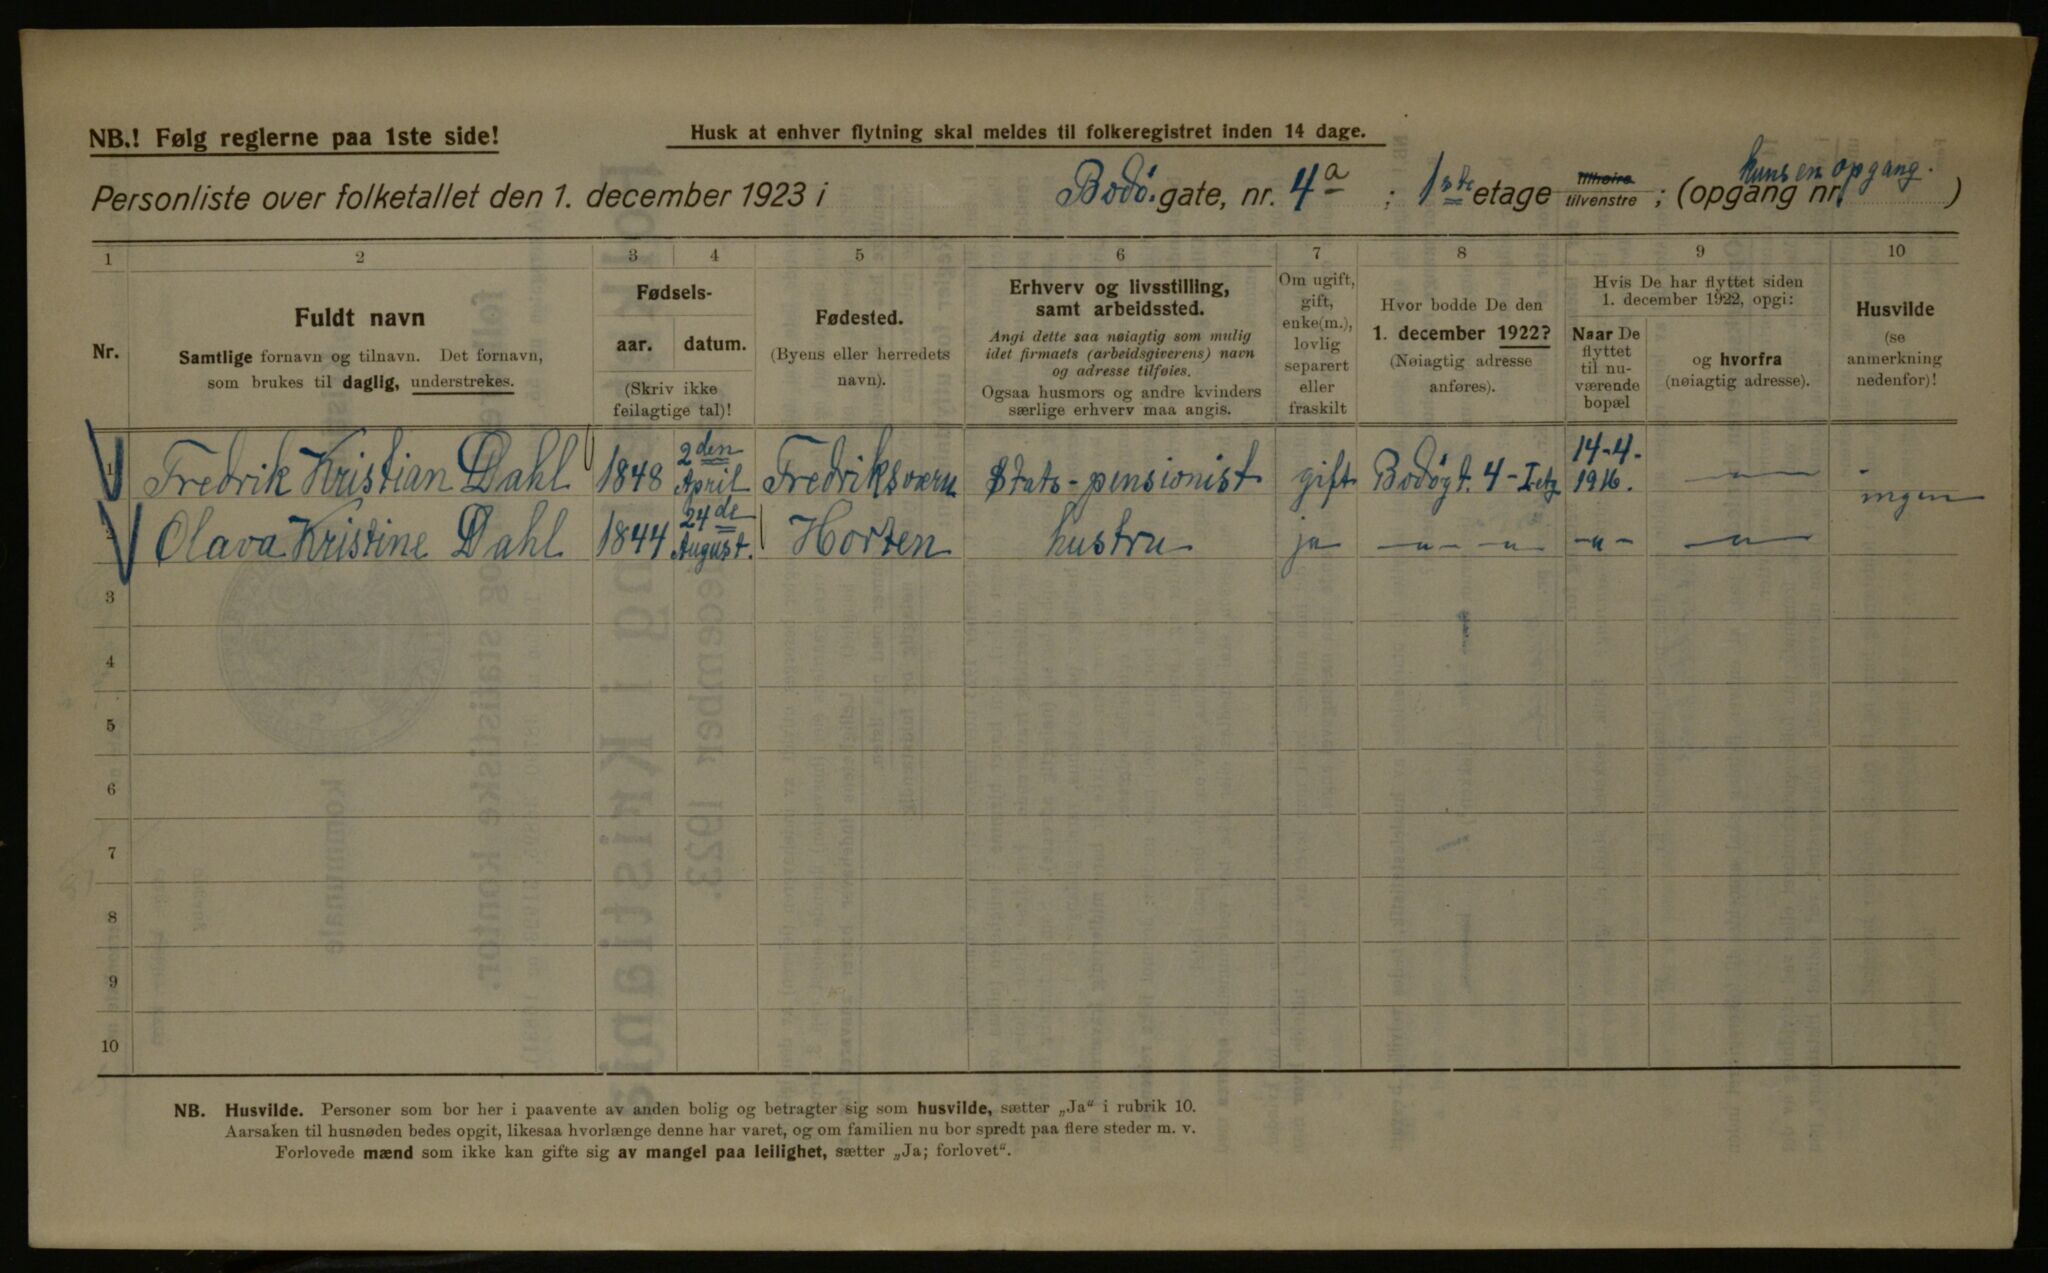 NB.! Følg reglerne paa 1ste side!
Husk at enhver flytning skal meldes til folkeregistret inden 14 dage.
Personliste over folketallet den 1. december 1923 i Bodø gate, nr. 4a ; 1ste etage tilhøire tilvenstre ; (opgang nr. kuns en opgang. )
1 2 3 4 5 6 7 8 9 10
Nr.
Fuldt navn
Samtlige fornavn og tilnavn. Det fornavn,
som brukes til daglig, understrekes.
Fødsels-
aar. datum.
(Skriv ikke
feilagtige tal)!
Fødested.
(Byens eller herredets
navn).
Erhverv og livsstilling,
samt arbeidssted.
Angi dette saa nøiagtig som mulig
idet firmaets (arbeidsgiverens) navn
og adresse tilføies.
Ogsaa husmors og andre kvinders
særlige erhverv maa angis.
Om ugift,
gift,
enke(m.),
lovlig
separert
eller
fraskilt
Hvor bodde De den
1. december 1922?
(Nøiagtig adresse
anføres).
Hvis De har flyttet siden
1. december 1922, opgi:
Naar De
flyttet
til nu-
værende
bopæl
og hvorfra
(nøiagtig adresse).
Husvilde
(se
anmerkning
nedenfor)!
1 Fredrik Kristian Dahl 1848 2den April Fredriksværn Stats-pensionist gift Bodøgt. 4 - I etg 14-4-1916. — " — -
ingen
2 Olava Kristine Dahl 1844 24de August. Horten hustru ja — " — " — - " - — " —
3
4
5
6
7
8
9
10
NB. Husvilde. Personer som bor her i paavente av anden bolig og betragter sig som husvilde, sætter „Ja“ i rubrik 10.
Aarsaken til husnøden bedes opgit, likesaa hvorlænge denne har varet, og om familien nu bor spredt paa flere steder m. v.
Forlovede mænd som ikke kan gifte sig av mangel paa leilighet, sætter „Ja; forlovet“.